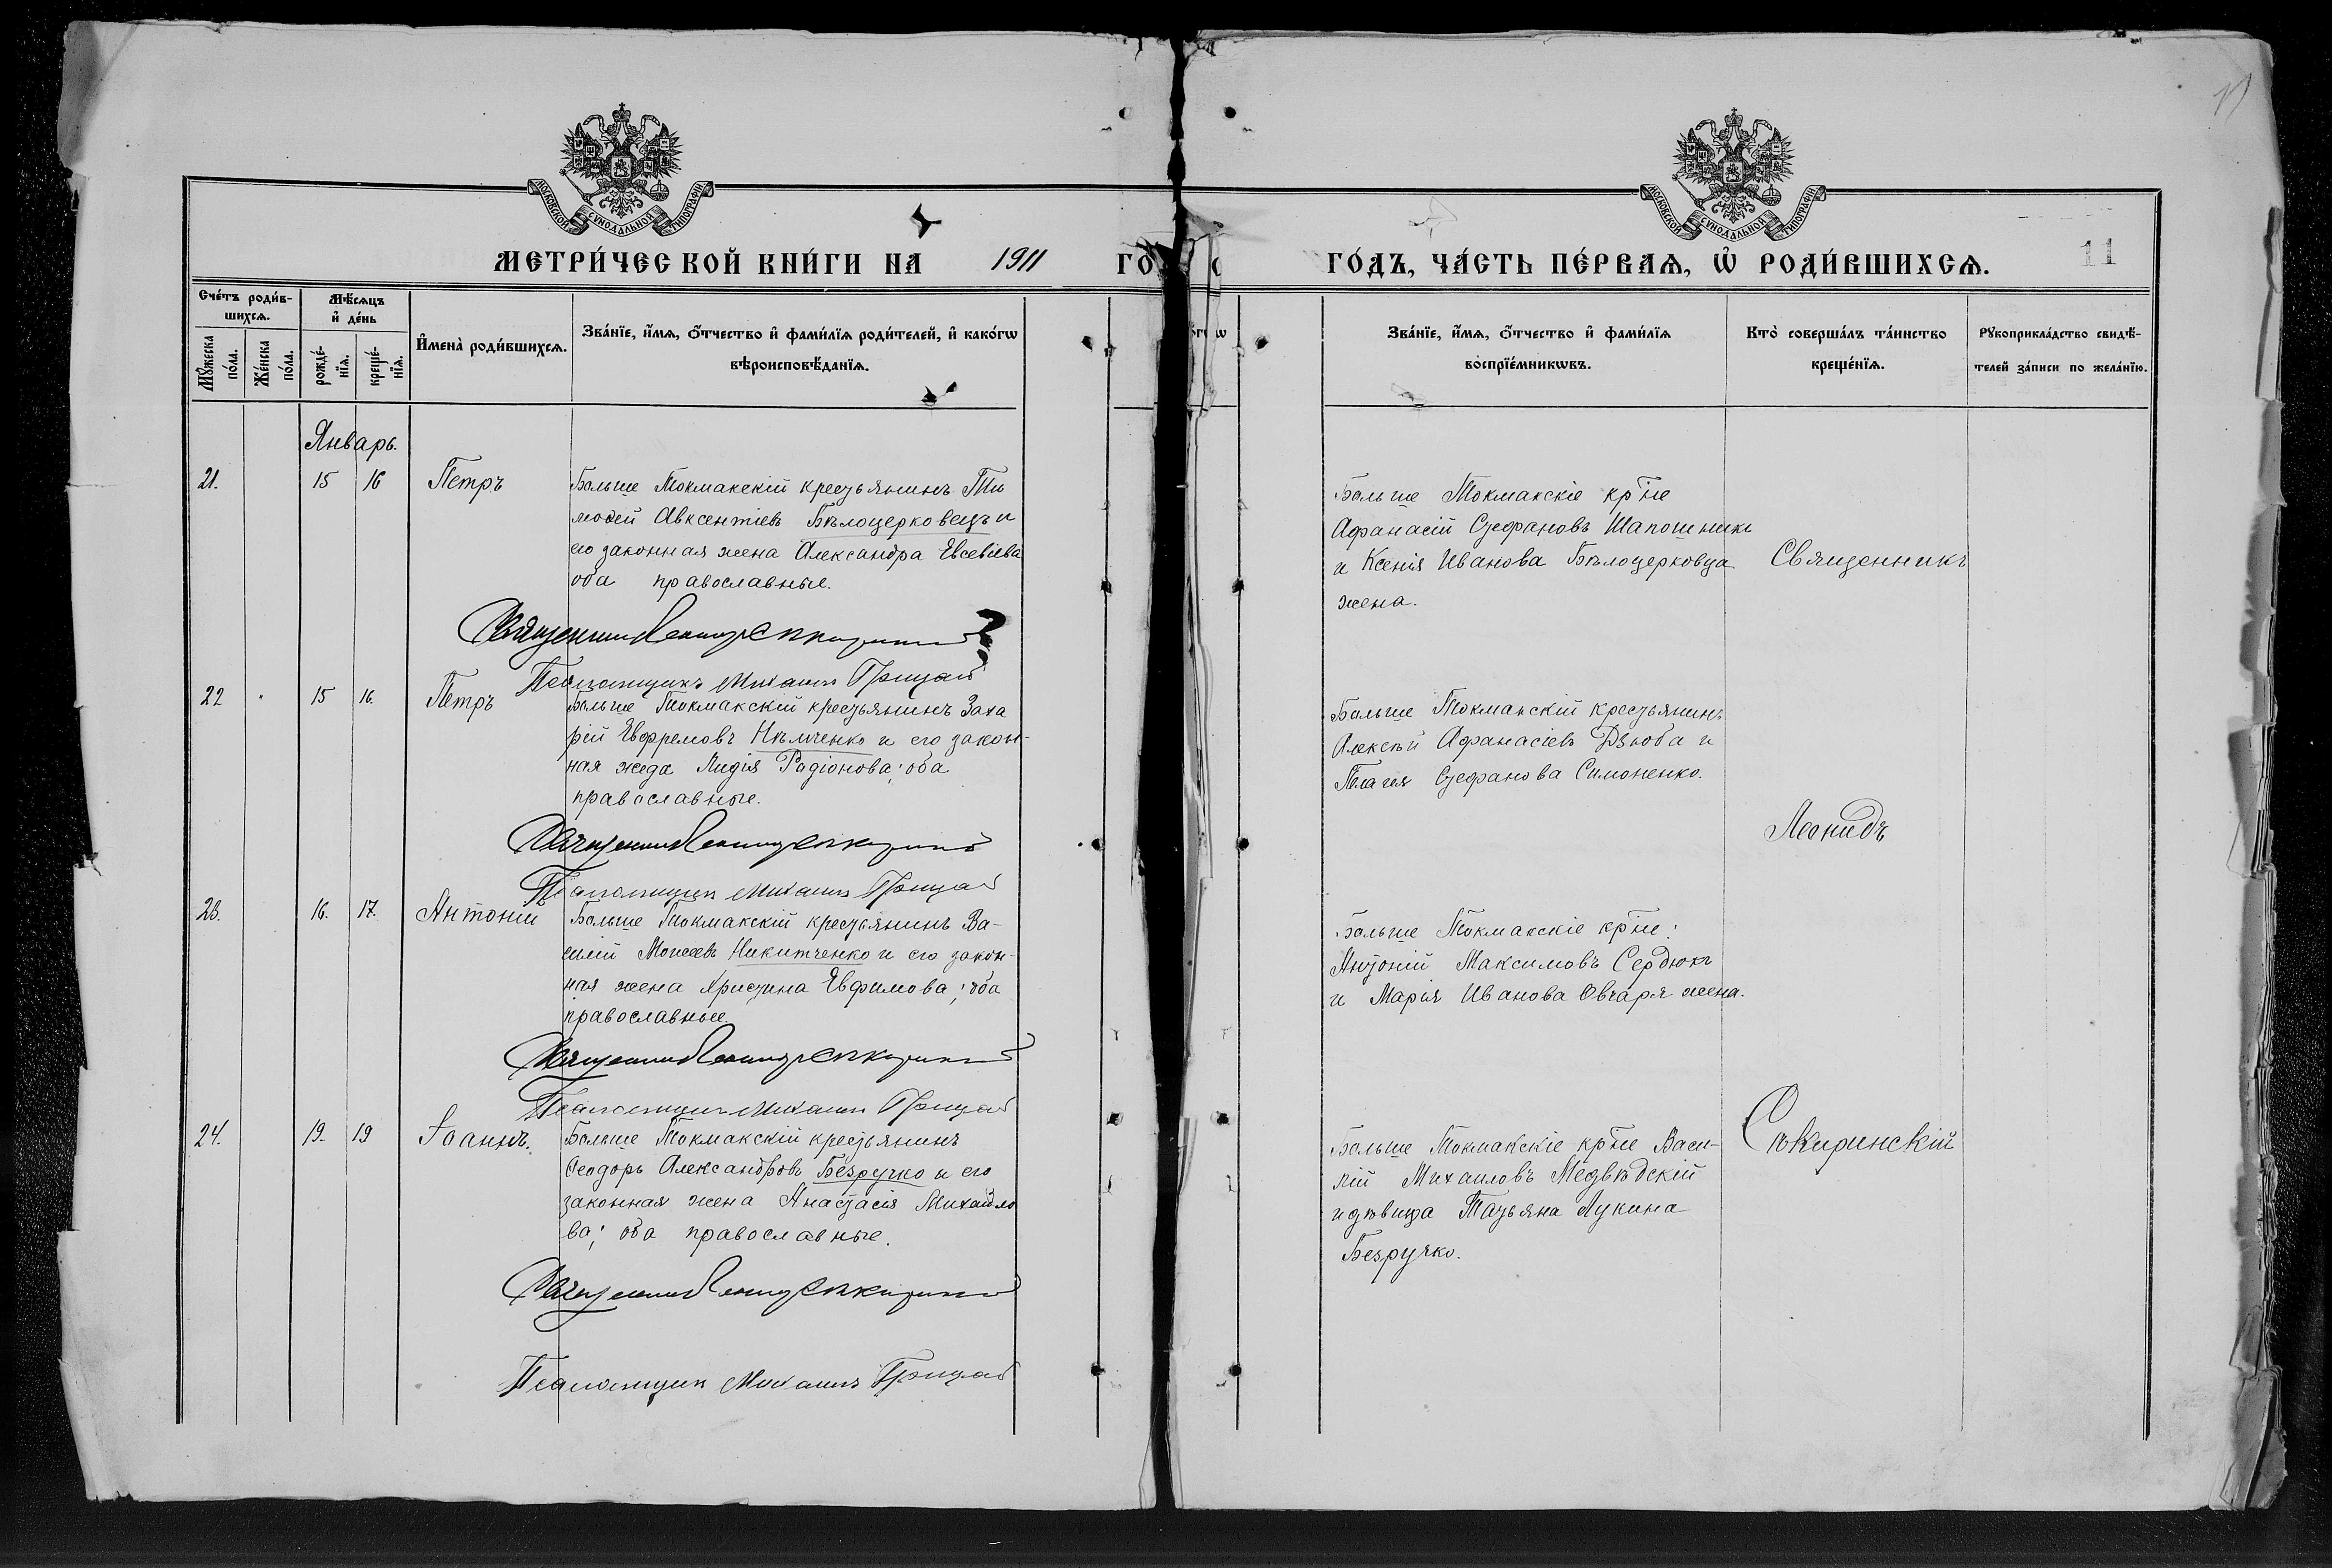 МОСКОВСКОЙ СѴНОДАЛЬНОЙ ТИПОГРАФІИ
МЕТРИ́ЧЕСКОЙ КНИ́ГИ НА 1911
Сче́тъ роди́в-
шихсѧ.
Мꙋ́жеска
по́ла.
Же́нска
по́ла.
Мѣ́сѧцъ
и҆ де́нь
рожде́-
нїѧ.
креще́-
нїѧ.
И҆мена̀ роди́вшихсѧ.
Зва́нїе, и҆́мѧ, ѻ҆́тчество и҆ фами́лїѧ роди́телей, и҆ како́гѡ
вѣроисповѣ́данїѧ.
Январь.
21.
15
16
Петръ
Больше Токмакскій крестьянинъ Ти
моѳей Авксентіевъ Бѣлоцерковецъ и
его законная жена Александра Евсевіева
оба православные.
Священникъ Леонидъ Сѣкиринскій
Псаломщикъ Михаилъ Грицай
22
15
16.
Петръ
Больше Токмакскій крестьянинъ Заха
рій Евфремовъ Нѣмченко и его закон-
ная жеда Лидія Радіонова; оба
православные.
Священникъ Леонидъ Сѣкиринскій
Псаломщикъ Михаилъ Грицай
23.
16.
17.
Антоній
Больше Токмакскій крестьянинъ Ва-
силій Моисеевъ Никитченко и его закон-
ная жена Христина Евфимова; оба
православные.
Священникъ Леонидъ Сѣкиринскій
Псаломщикъ Михаилъ Грицай
24.
19.
19
Іоаннъ.
Больше Токмакскій крестьянинъ
Ѳеодоръ Александровъ Безручко и его
законная жена Анастасія Михайло
ва; оба православные.
Священникъ Леонидъ Сѣкиринскій
Псаломщикъ Михаилъ Грицай
МОСКОВСКОЙ СѴНОДАЛЬНОЙ ТИПОГРАФІИ
ГО́ДЪ, ЧА́СТЬ ПЕ́РВАѦ, Ѡ҆ РОДИ́ВШИХСѦ.
11
Зва́нїе, и҆́мѧ, ѻ҆́тчество и҆ фами́лїѧ
воспрїе́мникѡвъ.
Кто̀ соверша́лъ та́инство
креще́нїѧ.
Рꙋкоприкла́дство свидѣ́-
телей за́писи по жела́нїю.
Больше Токмакскіе кр҃не
Афанасій Стефановъ Шапошникъ
и Ксенія Иванова Бѣлоцерковца
жена.
Больше Токмакскій крестьянинъ
Алексѣй Афанасіевъ Дзюба и
Пелагія Стефанова Симоненко.
Больше Токмакскіе кр҃не:
Антоній Максимовъ Сердюкъ
и Марія Иванова Овчаря жена.
Больше Токмакскіе кр҃не Васи-
лій Михаиловъ Медвѣдскій
и дѣвица Татьяна Лукина
Безручко.
Священникъ
Леонидъ
Сѣкиринскій